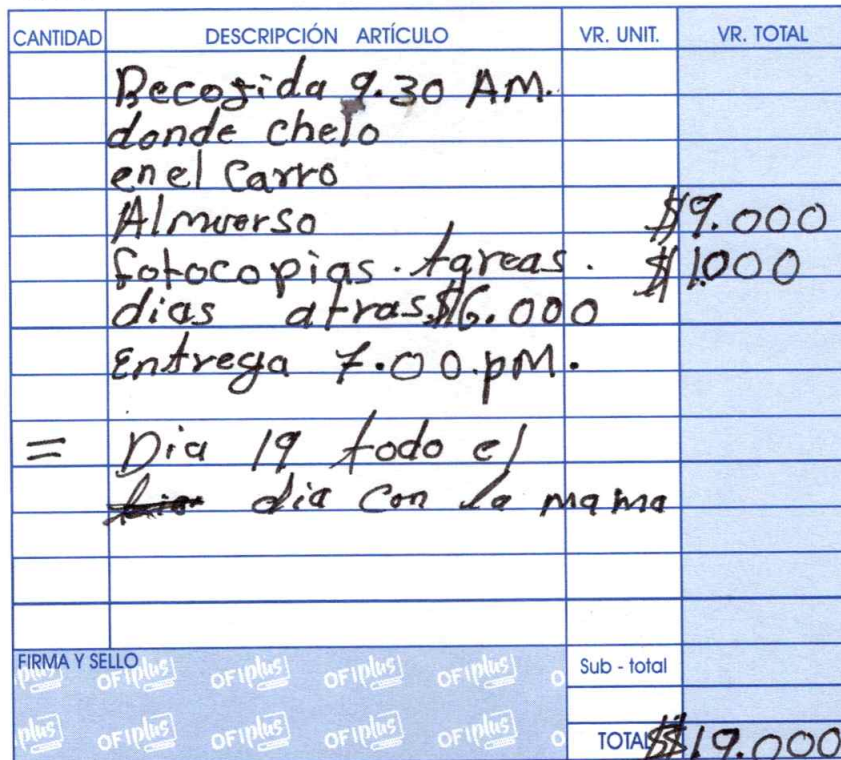 CANTIDAD DESCRIPCIÓN ARTÍCULO VR. UNIT. VR. TOTAL
Recogida 9.30 AM.
donde chelo
en el Carro
Almuerso $9.000
fotocopias. tareas. $1.000
dias atras $6.000
Entrega 7.00.pM.
= Dia 19 todo el
dia con la mama
FIRMA Y SELLO Sub - total
plus OFIplus OFIplus OFIplus OFIplus O
plus OFIplus OFIplus OFIplus OFIplus O
TOTAL $$19.000